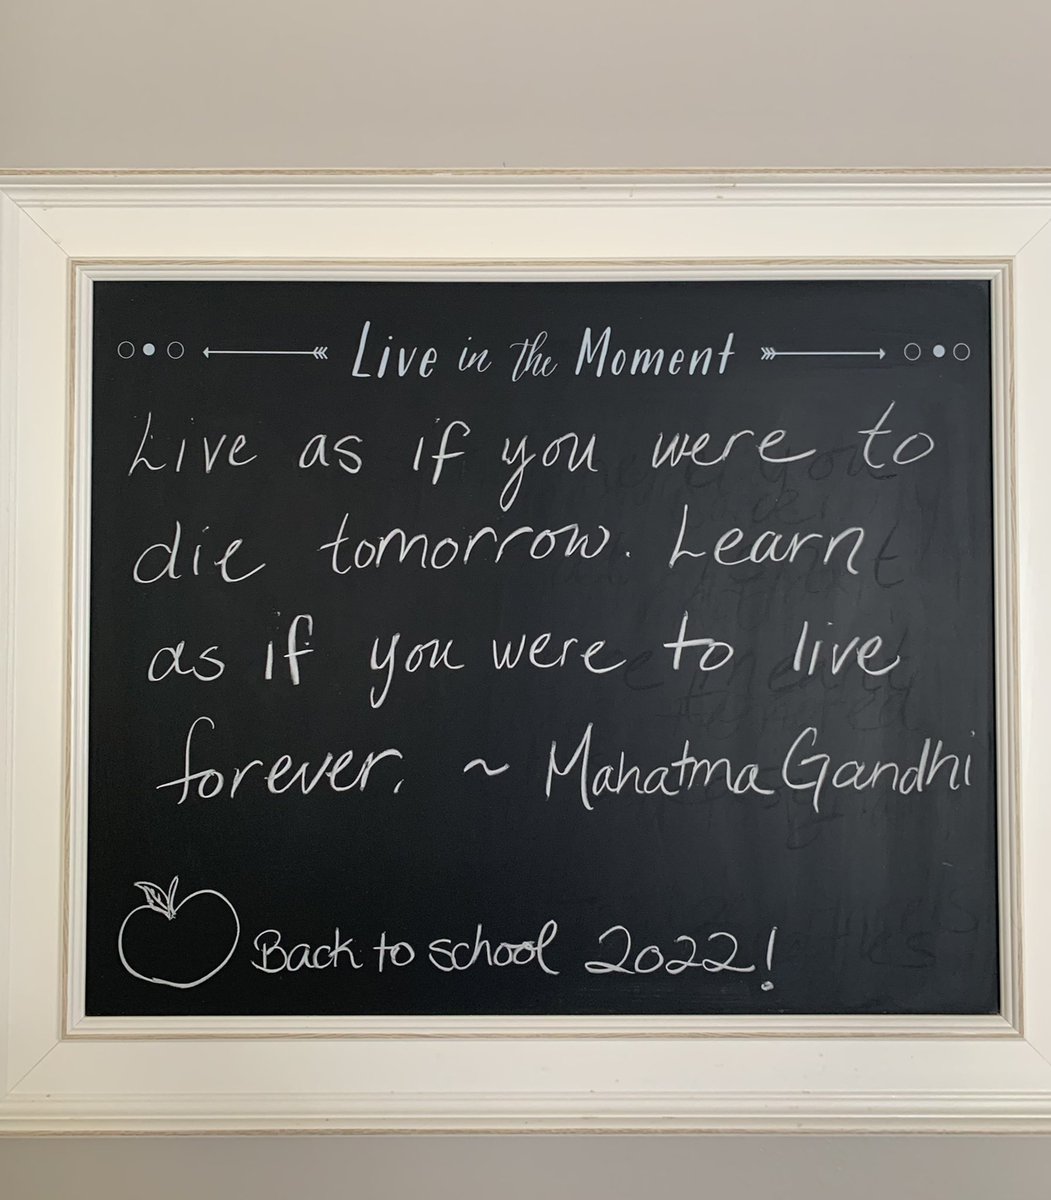 Live in the Moment
Live as if you were to
die tomorrow. Learn
as if you were to live
forever. ~ Mahatma Gandhi
Back to school 2022!